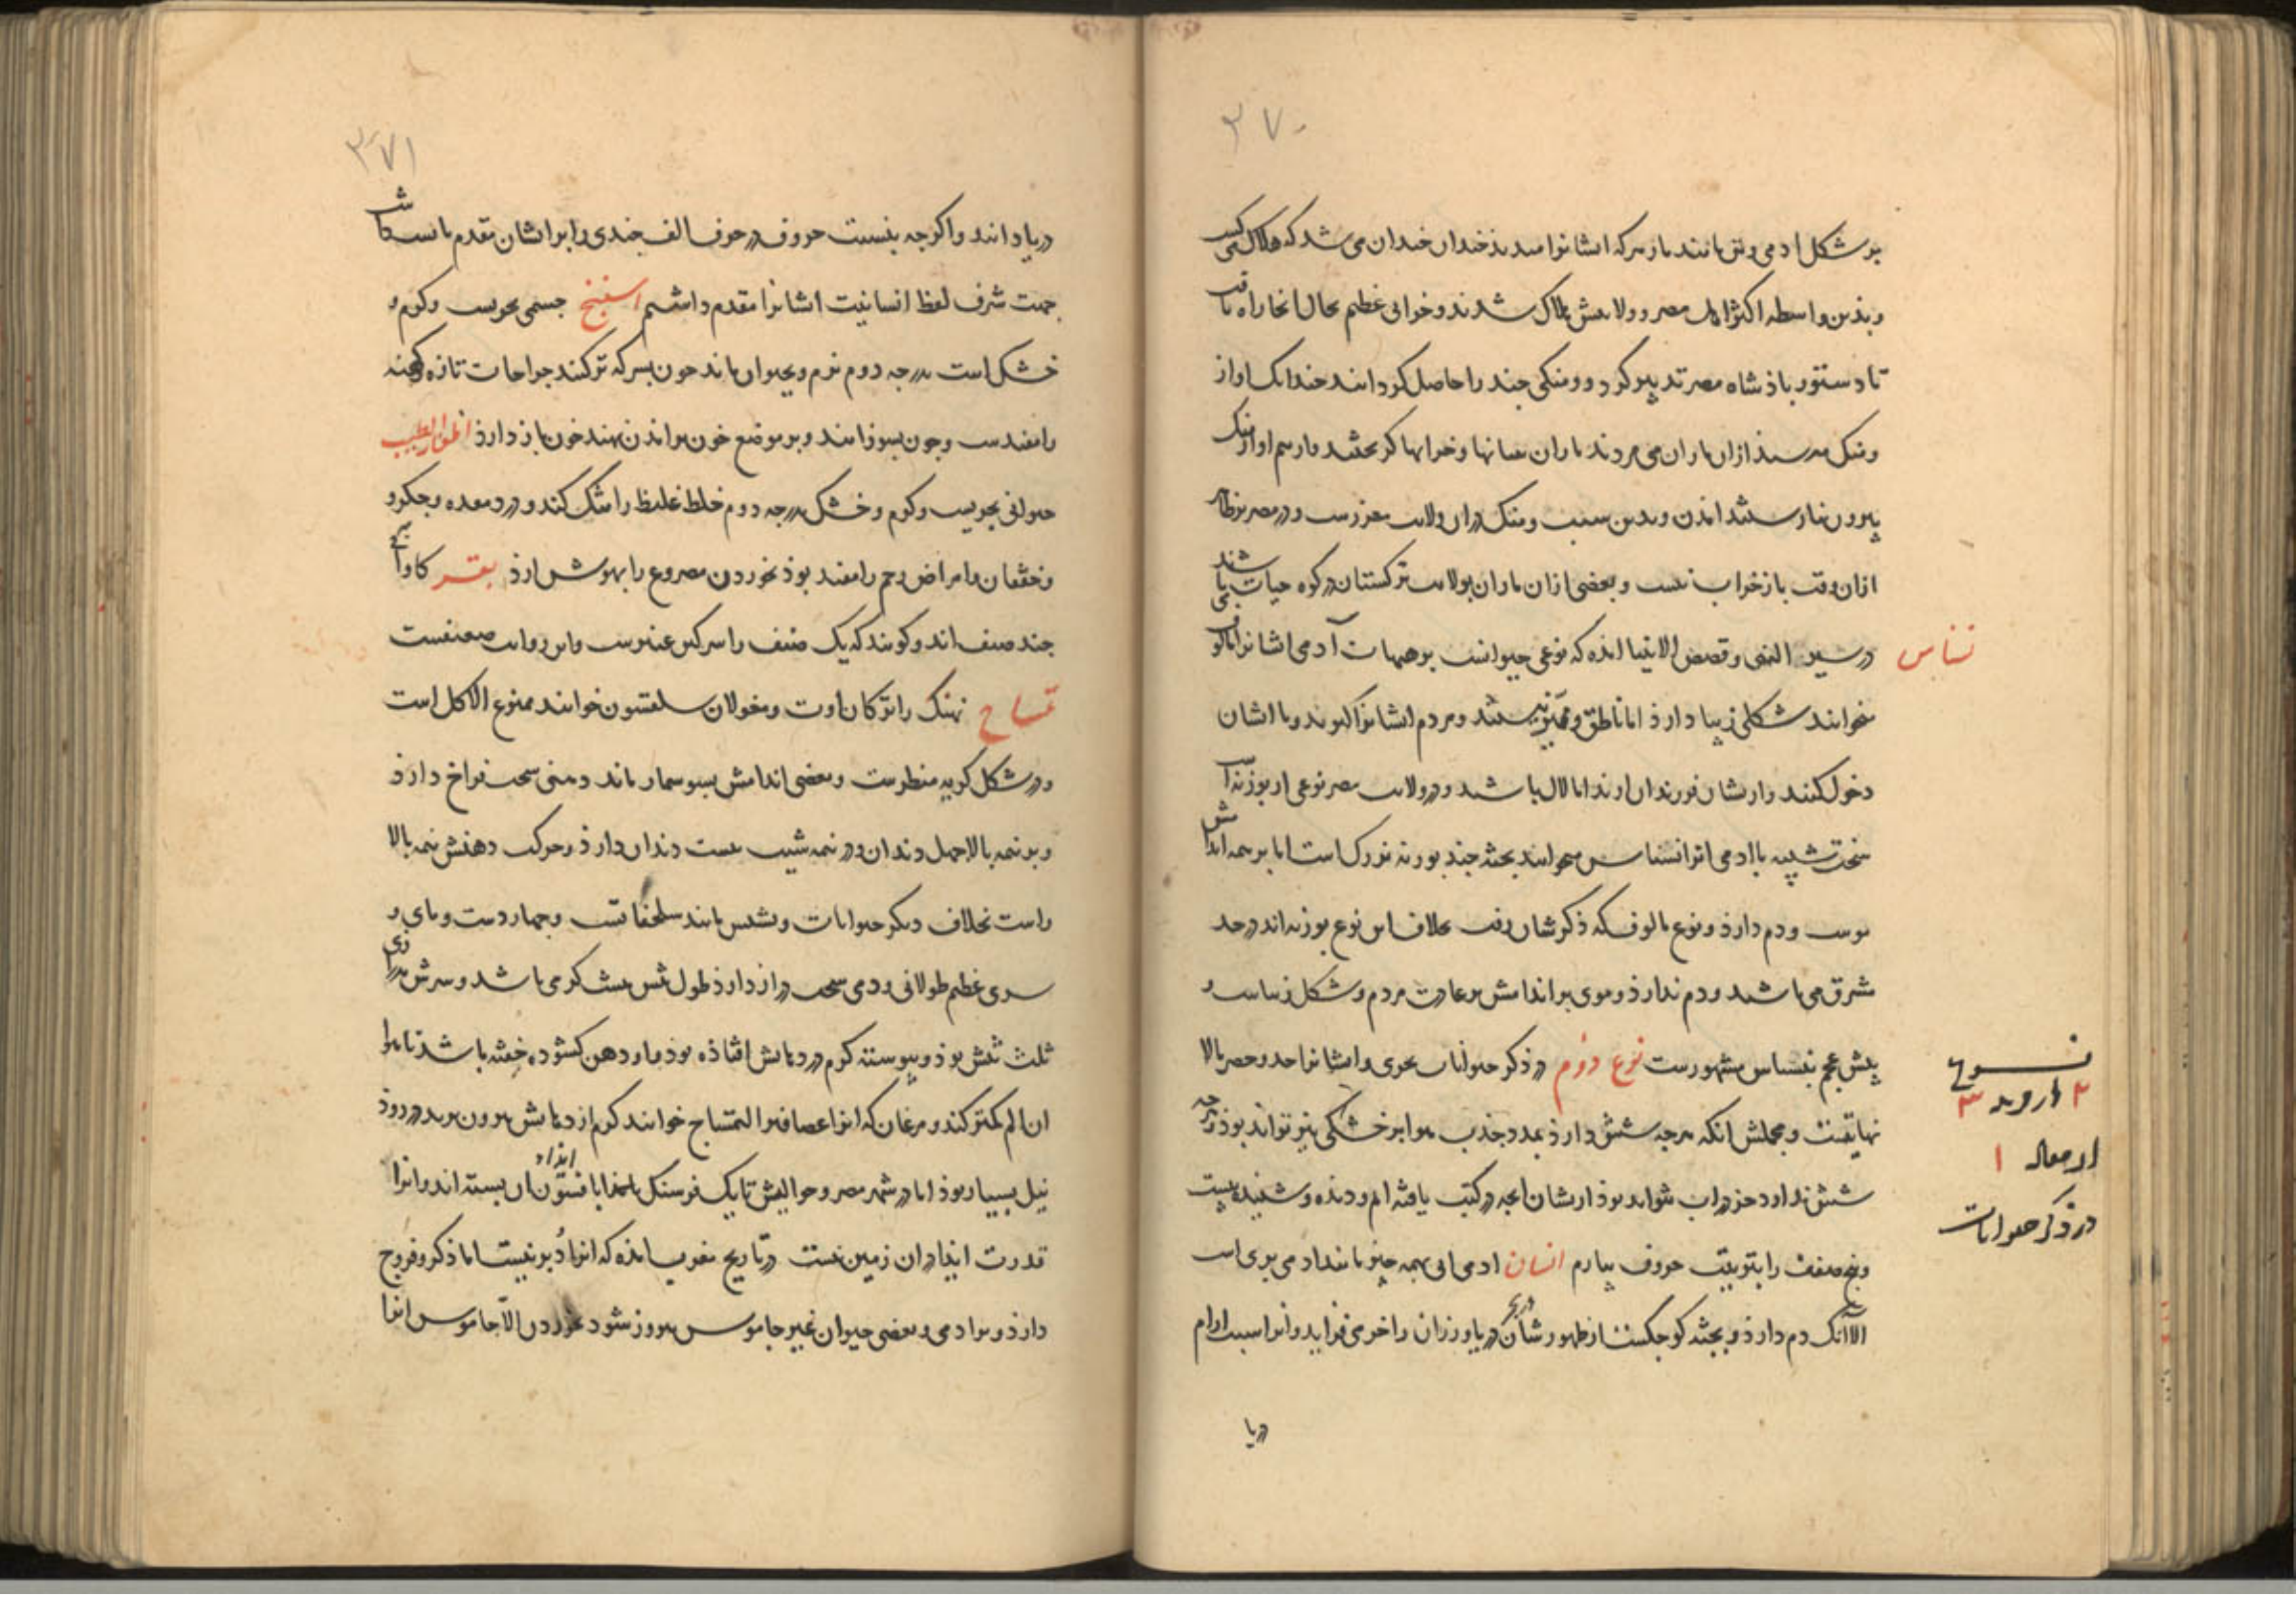 ۳۷۰
بر شکل ادمی و تن مانند مار هرکه ایشانرا میدید خندان خندان می شد که هلاک می گشت
و بدین واسطه اکثر اهل مصر و ولایتش هلاک شدند و خرابی عظیم بحال انجا راه یافت
تا دستور پادشاه مصر تدبیر کرد و ومنکی چند را حاصل کردانند چندانک اواز
ومنک میرسید ازان ماران می مردند ماران بنهانها و خرابها کریختند و از سم اواز ومنک
بیرون نیارستند امدن و بدین سبب ومنک دران ولایت معززست و در مصر
ازان وقت باز خراب نیست و بعضی ازان ماران بولایت ترکستان در کوه حیات می باشند
نسناس
در سیر النبی و قصص الانبیا امده که نوعی حیوانست بر هیات آدمی ایشانرا
میخوانند شکلی زیبا دارذ اما ناطق و ممیز نیستند و مردم ایشانرا کیرند و با ایشان
دخول کنند و ازیشان فرزندان ارند اما لال باشند و در ولایت مصر نوعی از بوزنه است
سخت شبیه با ادمی انرا نسناس میخوانند بجثه چند بوزنه بزرک است اما بر همه اندامش
موست و دم دارذ و نوع مالوف که ذکرشان رفت بخلاف این نوع بوزنه اند در حد
مشرق می باشند و دم ندارذ و موی بر اندامش بر عادت مردم و شکل زیباست و
پیش عجم بنسناس مشهورست نوع دوم در ذکر حیوانات بحری و ایشانرا حد و حصر بالا
نهایتست و مجملش انکه هرچه شش دارذ بمدد جذب هوا بر خشکی نیز تواند بوذ و هرچه
شش نداود جز در اب نتواند بوذ ازیشان انچه در کتب یافته ام و دیده و شنیده بیست
و پنج صفت را بترتیب حروف بیارم انسان ادمی ابی بهمه چیز مانند ادمی بری است
الا آنک دم دارذ و بجثه کوچکست از ظهور شان در دریا ورزان را خرمی فزاید و انرا سبب ارام
دریا
نسوع
۲ از وجه ۳
از مقاله ۱
در ذکر حیوانات
۳۷۱
دریا دانند و اکرچه بنسبت حروف در حرف الف چندی را بر ایشان مقدم بایست داشت
جهت شرف لفظ انسانیت ایشانرا مقدم داشتم اسفنج جسمی بحریست و کرم و
خشک است بدرجه دوم نرم و بحیوان ماند چون بسرکه تر کنند جراحات تازه و کهنه
را مفیدست و چون بسوزانند و بر موضع خون براندن نهند خون باز دارذ اظفار الطیب
حیوانی بحریست و کرم و خشک بدرجه دوم خلط غلیظ را سبک کند و درد معده و جکر و
و خفقان و امراض رحم را مفید بوذ بخوردن مصروع را بهوش ارذ بقر کاو آبی
چند صنف اند و کویند که یک صنف را سرکین عنبرست و این روایت ضعیفست
تمساح نهنک را ترکان لوت و مغولان سلقسون خوانند ممنوع الاکل است
و در شکل کریه منظرست و بعضی اندامش بسوسمار ماند دهنی سخت فراخ دارذ
و بر نیمه بالا چهل دندان و در نیمه شیب بیست دندان دارذ و حرکت دهنش نیمه بالا
راست بخلاف دیکر حیوانات و پشتش مانند سلحفاتست و چهار دست و پای و
سری عظیم طولانی و دمی سخت دراز دارذ طول تنش بیست کز می باشد و سرش بدرازی
ثلث تنش بوذ و پیوسته کرم در دهانش افتاذه بوذ و او دهن کشوده خفته باشد تا هوا
ان الم کمتر کند و مرغان که انرا عصافیر التمساح خوانند کرم از دهانش بیرون برند در روذ
نیل بسیار بوذ اما در شهر مصر و حوالیش تا یک فرسنک بامذا بافسون ان بسته اند و انرا
قدرت ایذاء دران زمین نیست در تاریخ مغرب امذه که انرا دُبر نیست اما ذکر و فروج
دارذ و برادمی و بعضی حیوان غیر جاموس بیروز شود بخوردن الّا جاموس انرا